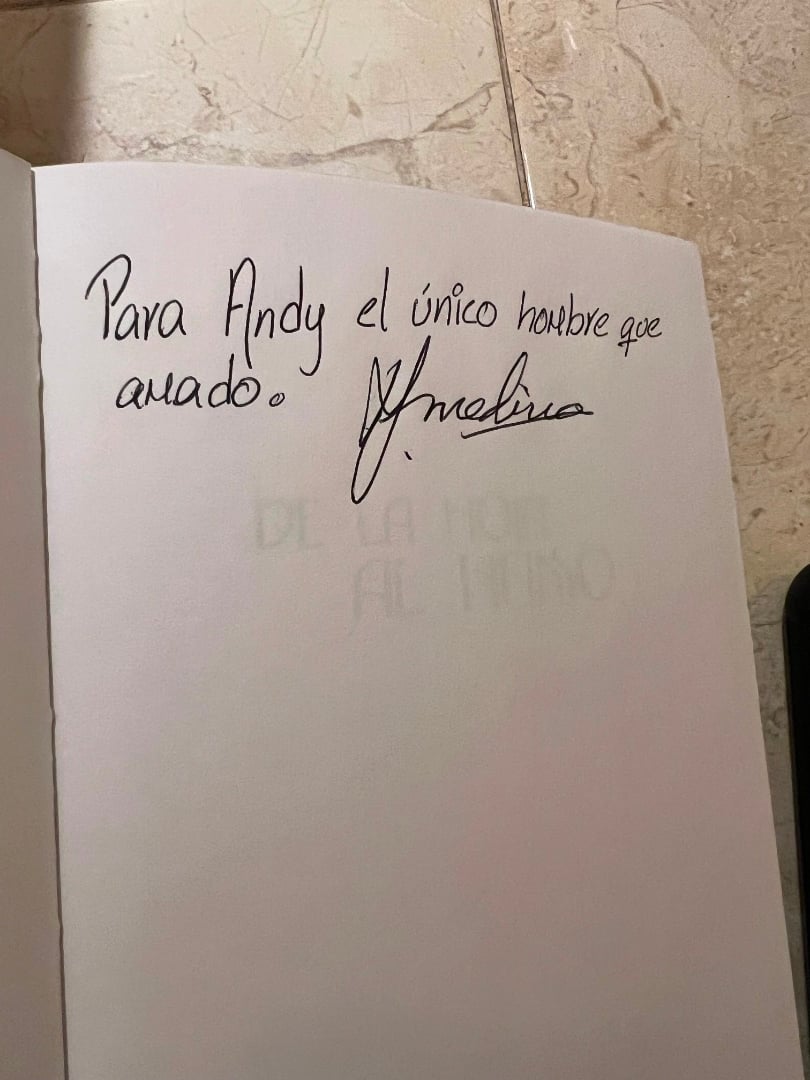 Para Andy el único hombre que
amado. Medina
DE LA
AL HUMO